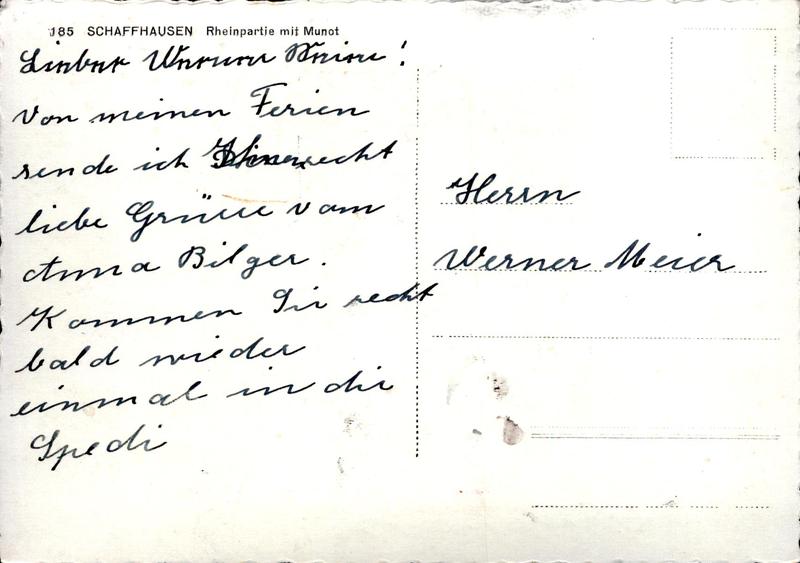 185 SCHAFFHAUSEN Rheinpartie mit Munot
Lieber Werner Meier!
Von meinen Ferien
sende ich Ihnen recht
liebe Grüsse vom
Anna Bilger.
Kommen Sie recht
bald wieder
einmal in die
Spedi
Herrn
Werner Meier